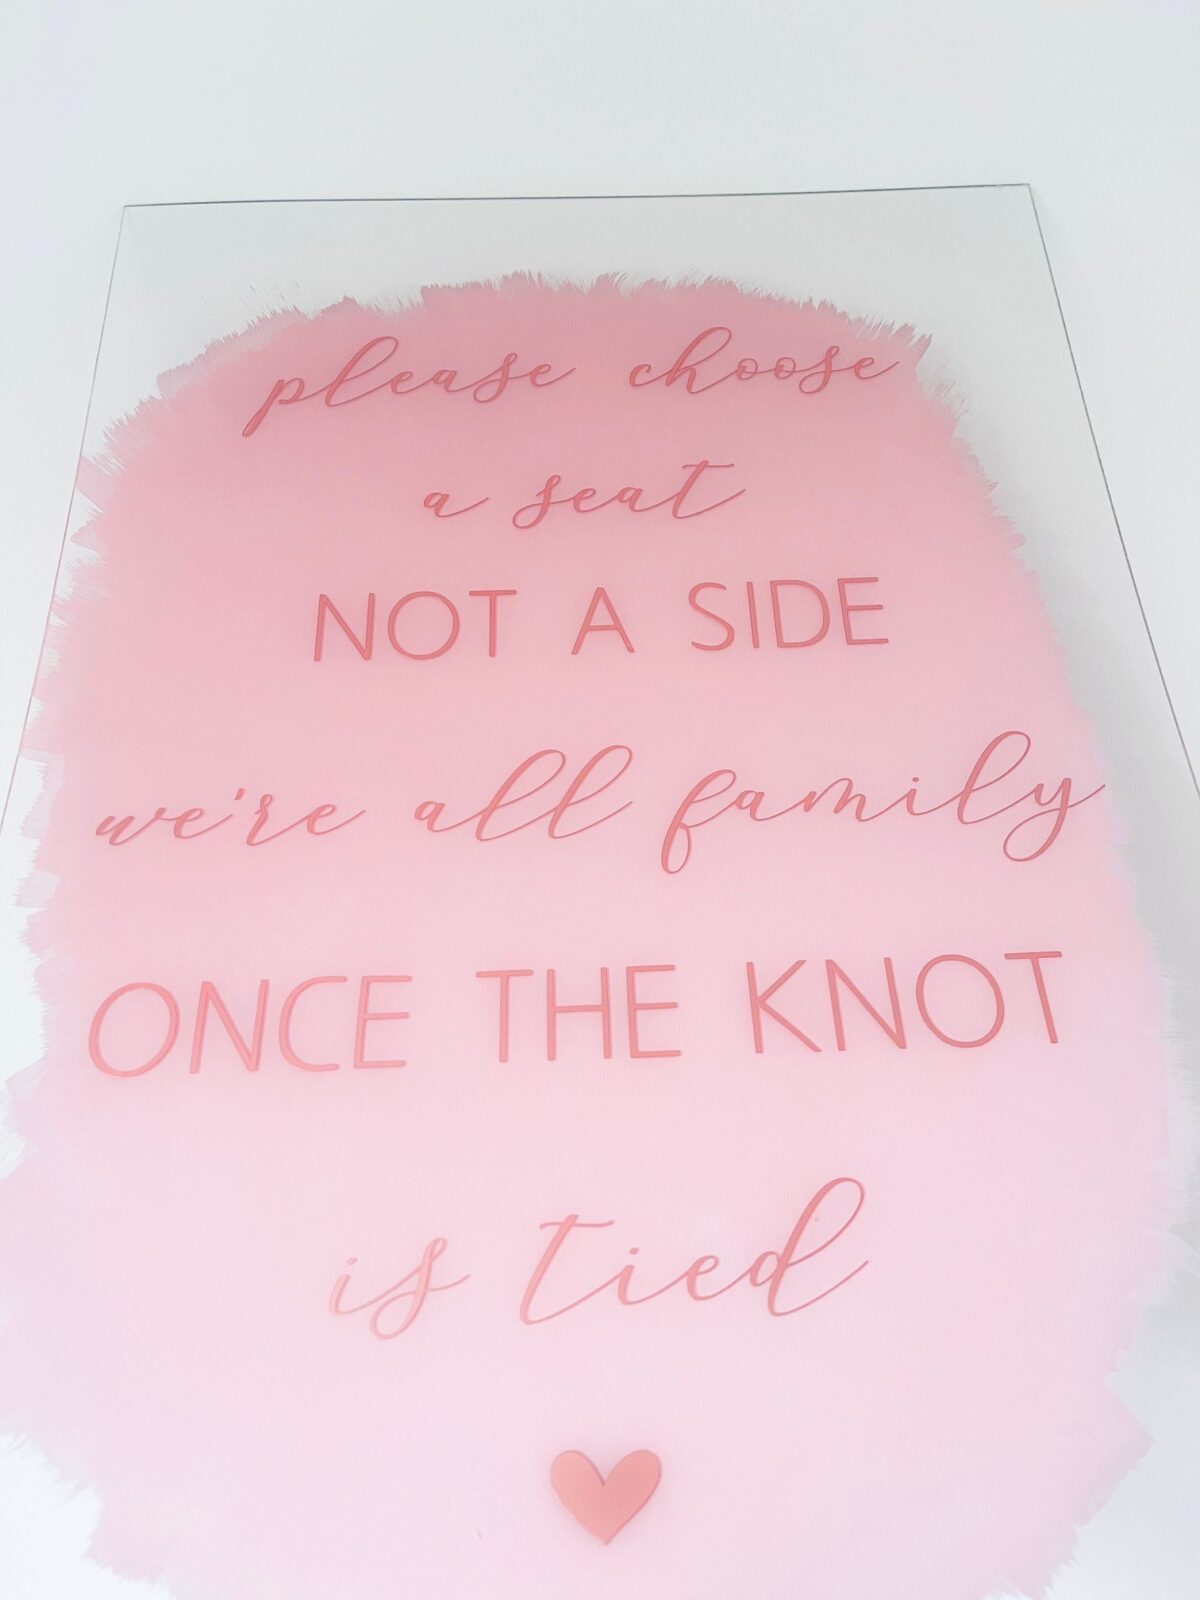 please choose
a seat
NOT A SIDE
we're all family
ONCE THE KNOT
is tied